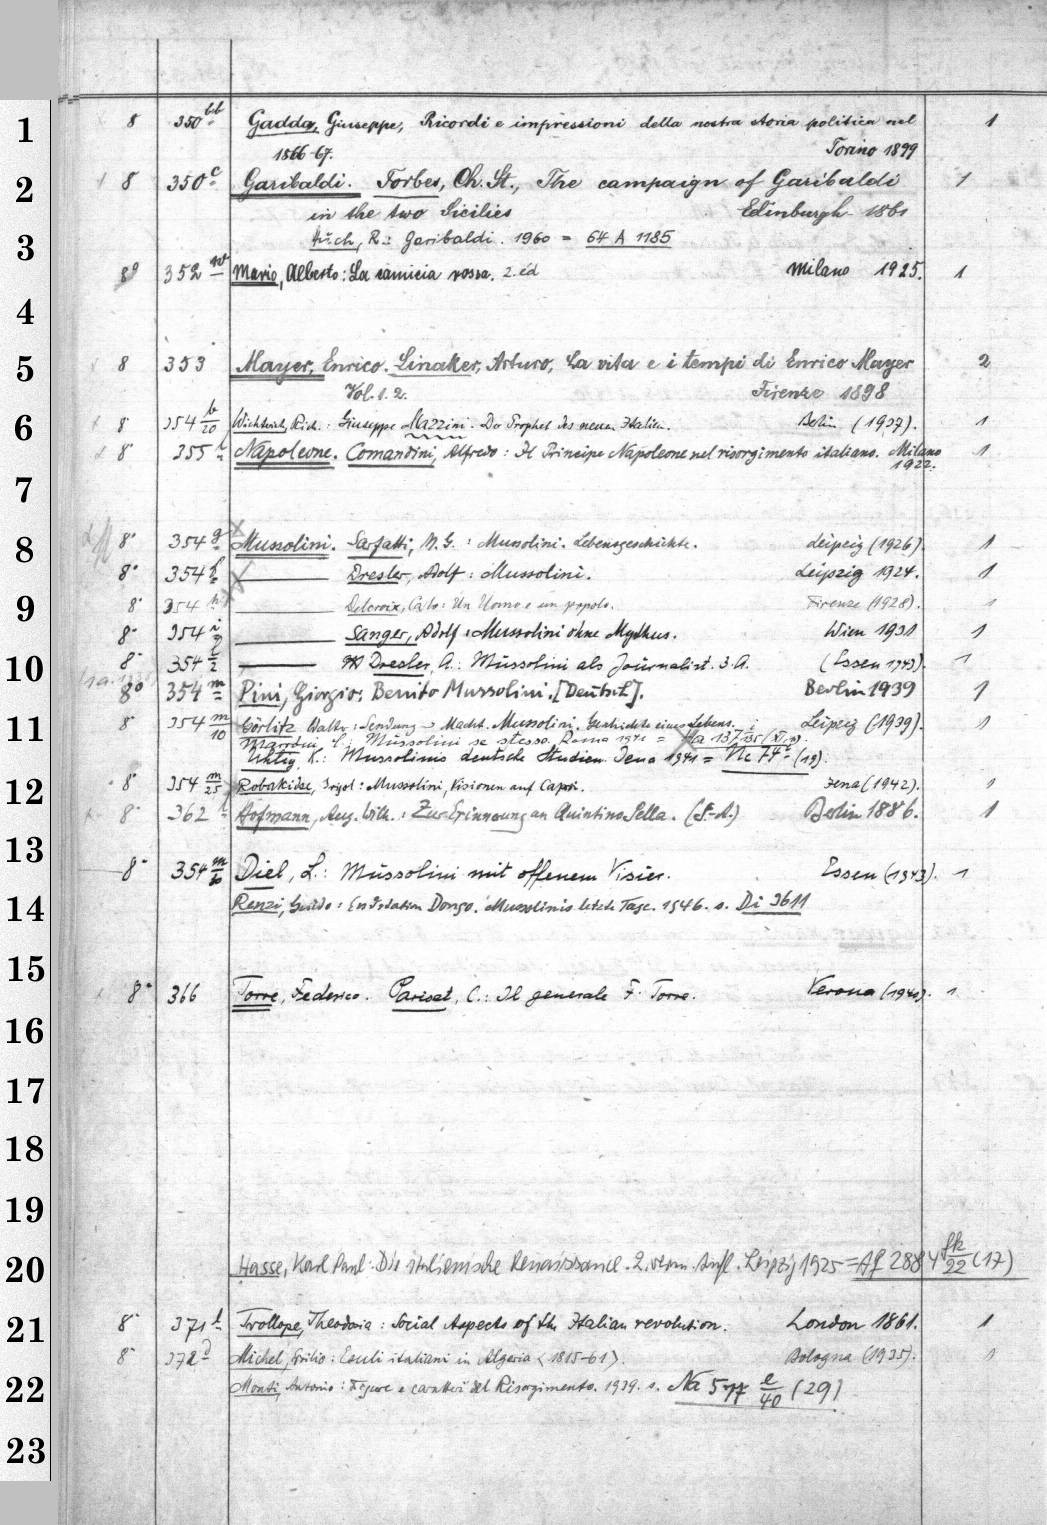 1
8 350 bb Gadda, Giuseppe, Ricordi e impressioni della nostra storia politica nel 1
1866-67. Torino 1899
2
8 350 c Garibaldi. Forbes, Ch. St., The campaign of Garibaldi 1
in the two Sicilies Edinburgh 1861
3
R.: Garibaldi. 1960 = 64 A 1185
8° 352 Mario, Alberto: La camicia rossa. 2. ed Milano 1925. 1
4
5
8 353 Mayer, Enrico. Linaker, Arturo, La vita e i tempi di Enrico Mayer 2
Vol. 1. 2. Firenze 1898
6
8 354 b/20 Wichterich, Rich.: Giuseppe Mazzini. Der Prophet des neuen Italien. Berlin (1937). 1
8° 355 Napoleone. Comandini, Alfredo: Il Principe Napoleone nel risorgimento italiano. Milano 1
1922.
7
8
8° 354 g Mussolini. Sarfatti, M. G.: Mussolini. Lebensgeschichte. Leipzig (1926). 1
8° 354 h Dresler, Adolf: Mussolini. Leipzig 1924. 1
9
8° 354 Delcroix, Carlo: Un Uomo e un popolo. Firenze (1928). 1
8° 354 i Sanger, Adolf: Mussolini ohne Mythus. Wien 1931 1
10
8° 354 l/2 Dresler, A.: Mussolini als Journalist. 3. A. (Essen 1943). 1
8° 354 m Pini, Giorgio: Benito Mussolini. [Deutsch]. Berlin 1939 1
11
8° 354 m/10 Görlitz, Walter: Sendung u. Macht. Mussolini. Geschichte eines Lebens. Leipzig (1939). 1
Mussolini se stesso. Roma 1941 = Ha 137
Uhlig, K.: Mussolinis deutsche Studien. Jena 1941 = Nc 74 (19).
12
8° 354 m/25 Robakidse, Grigol: Mussolini, Visionen auf Capri. Jena (1942). 1
8° 362 Hofmann, Aug. Wilh.: Zur Erinnerung an Quintino Sella. (S.-A.) Berlin 1886. 1
13
8° 354 m/b Diel, L.: Mussolini mit offenem Visier. Essen (1943). 1
14
Renzi, Guido: Endstation Dongo. Mussolinis letzte Tage. 1946. s. Di 3611
15
8° 366 Torre, Federico. Pariset, C.: Il generale F. Torre. Verona (1940). 1
16
17
18
19
20
Hasse, Karl Paul: Die italienische Renaissance. 2. verm. Aufl. Leipzig 1925 = Af 2884 fk/22 (17)
21
8° 371 Trollope, Theodosia: Social Aspects of the Italian revolution. London 1861. 1
8° 372 Michel, Ersilio: Esuli italiani in Algeria (1815-61). Bologna (1935). 1
22
Monti, Antonio: Figure e caratteri del Risorgimento. 1939. s. Na 577 e/40 (29)
23